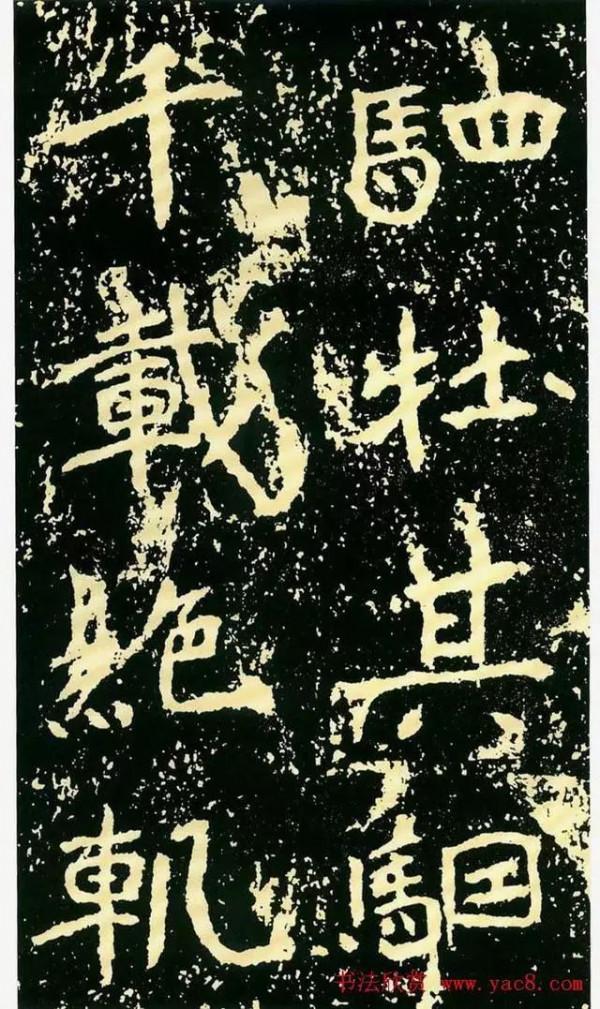 駟牡其駰
千載絶軌
书法欣赏 www.yac8.com